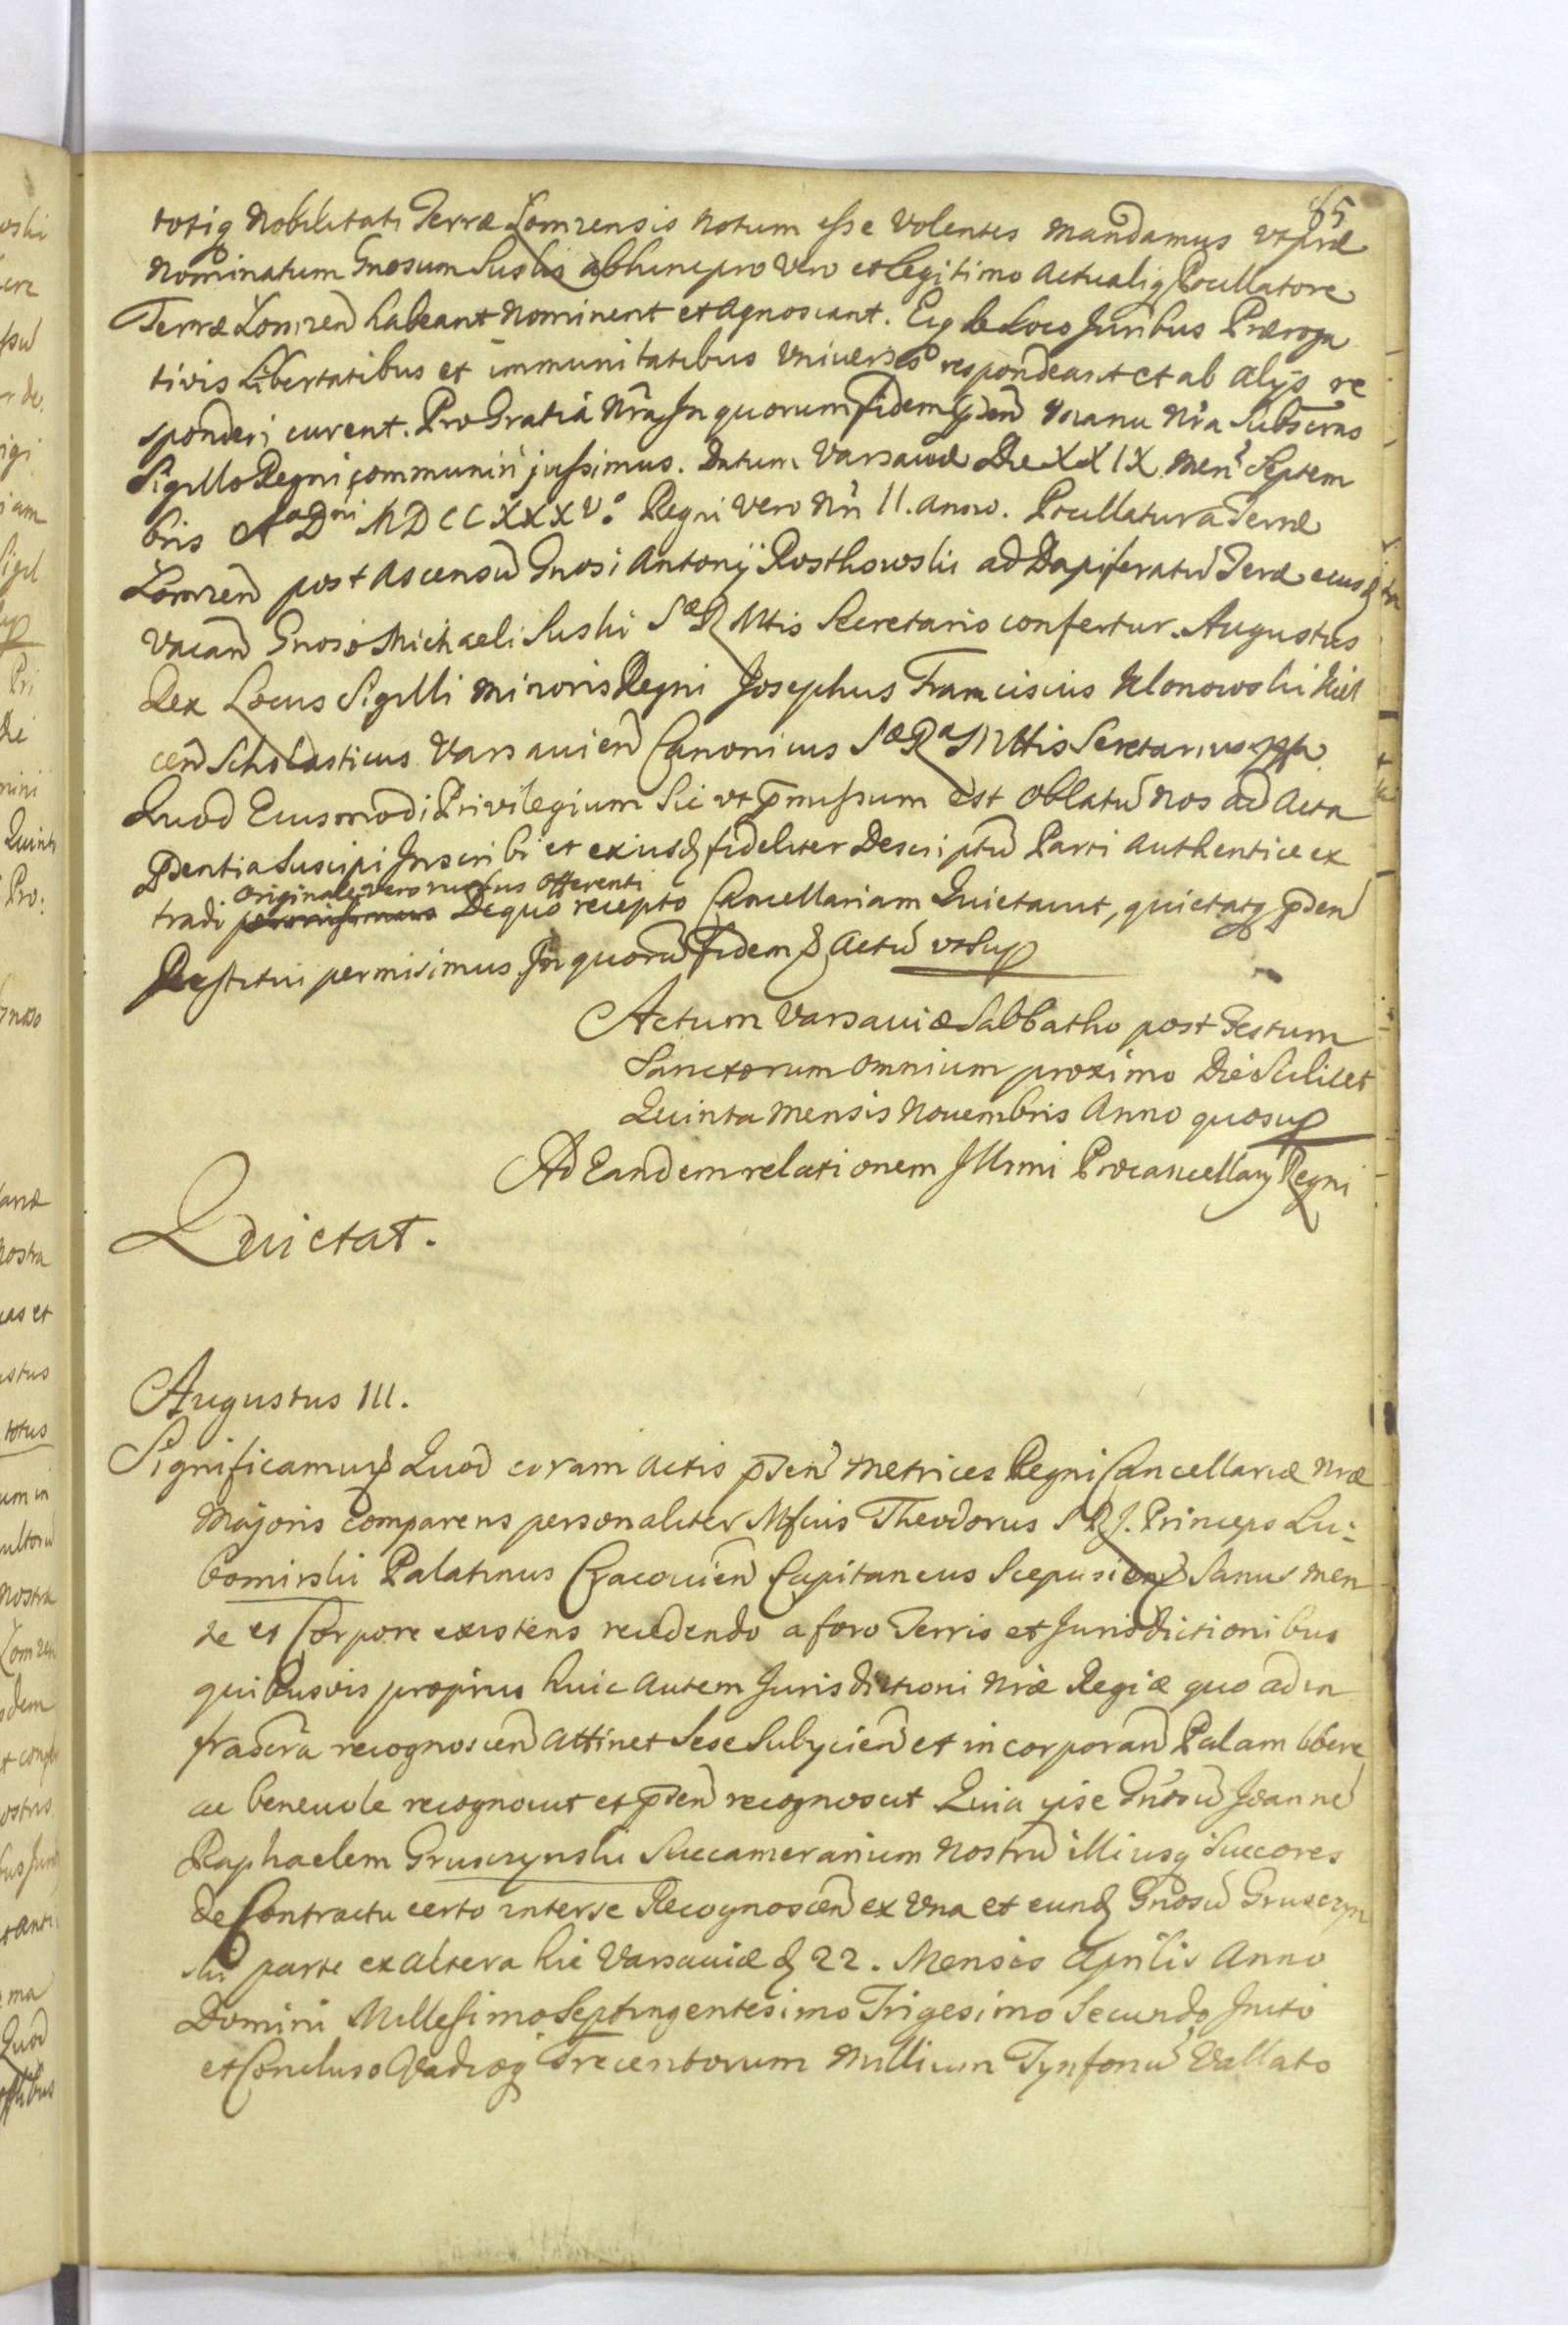 85
totiq Nobilitati Terræ Lomzensis Notum esse Volentes Mandamus vt præ
Nominatum Gnosum Suski abhinc pro Vero et Legitimo Actualiq Pocillatore
Terræ Lomzen habeant Nominent et Agnoscant. Eiq de Loco Juribus Præroga
tivis Libertatibus et immunitatibus Vniversis respondeant et ab Alijs re
sponderi curent. Pro Gratia Nra, In quorum fidem pden Manu Nra Subscras
Sigillo Regni communiri jussimus. Datum Varsaviæ Die XXIX Mens Septem
bris Ao Dni MDCCXXXVo Regni Vero Nri II. anno. Pocillatura Terræ
Lomzen post Ascensu Gnosi Antonij Rostkowski ad Dapiferatu Teræ eius
Vacan Gnoso Michaeli Suski Sæ R Mtis Secretario confertur. Augustus
Rex Locus Sigilli Minoris Regni Josephus Franciscus Klonowski Kiel
cen Scholasticus Varsavien Canonicus Sæ Ra Mttis Secretarius mpp
Quod Eiusmodi Privilegium Sic vt pmissum est Oblatu Nos ad Acta
Pdentia Suscipi Inscribi et exiisd fideliter Descriptu Parti Authentice ex
Originale vero rursus Offerenti
tradi De quo recepto Cancellariam Quietavit, quietatq pden
Restitui permisimus, In quoru Fidem Actu vt Sup
Actum Varsaviæ Sabbatho post Festum
Sanctorum Omnium proximo Die Scilicet
Quinta Mensis Nouembris Anno quo sup
Ad Eandem relationem Illrmi Procancellarij Regni
Quietat.
Augustus III.
Significamus Quod coram Actis pden Metrices Regni Cancellariæ Nræ
Majoris Comparens personaliter Mfcus Theodorus S R J. Princeps Lu:
bomirski Palatinus Cracovien Capitaneus Scepusien Sanus Men
te et Corpore existens recedendo a foro Terris et Jurisdictionibus
quibusvis proprus huic Autem Jurisdictioni Nræ Regiæ quo ad in
frascra recognoscen Attinet Sese Subijcien et incorporan Palam libere
ac beneuole recognovit et pden recognoscit Quia ipse Gnosu Joanne
Raphaelem Gruszynski Succamerarium Nostru illiusq Succores
de Contractu certo inter se Recognoscen ex Vna et eund Gnosu Gruszyn
ski parte ex Altera hic Varsaviæ d 22. Mensis Aprilis Anno
Domini Millesimo Septingentesimo Trigesimo Secundo Inito
et Concluso Vadioq Trecentorum Millium Tynforu Vallato